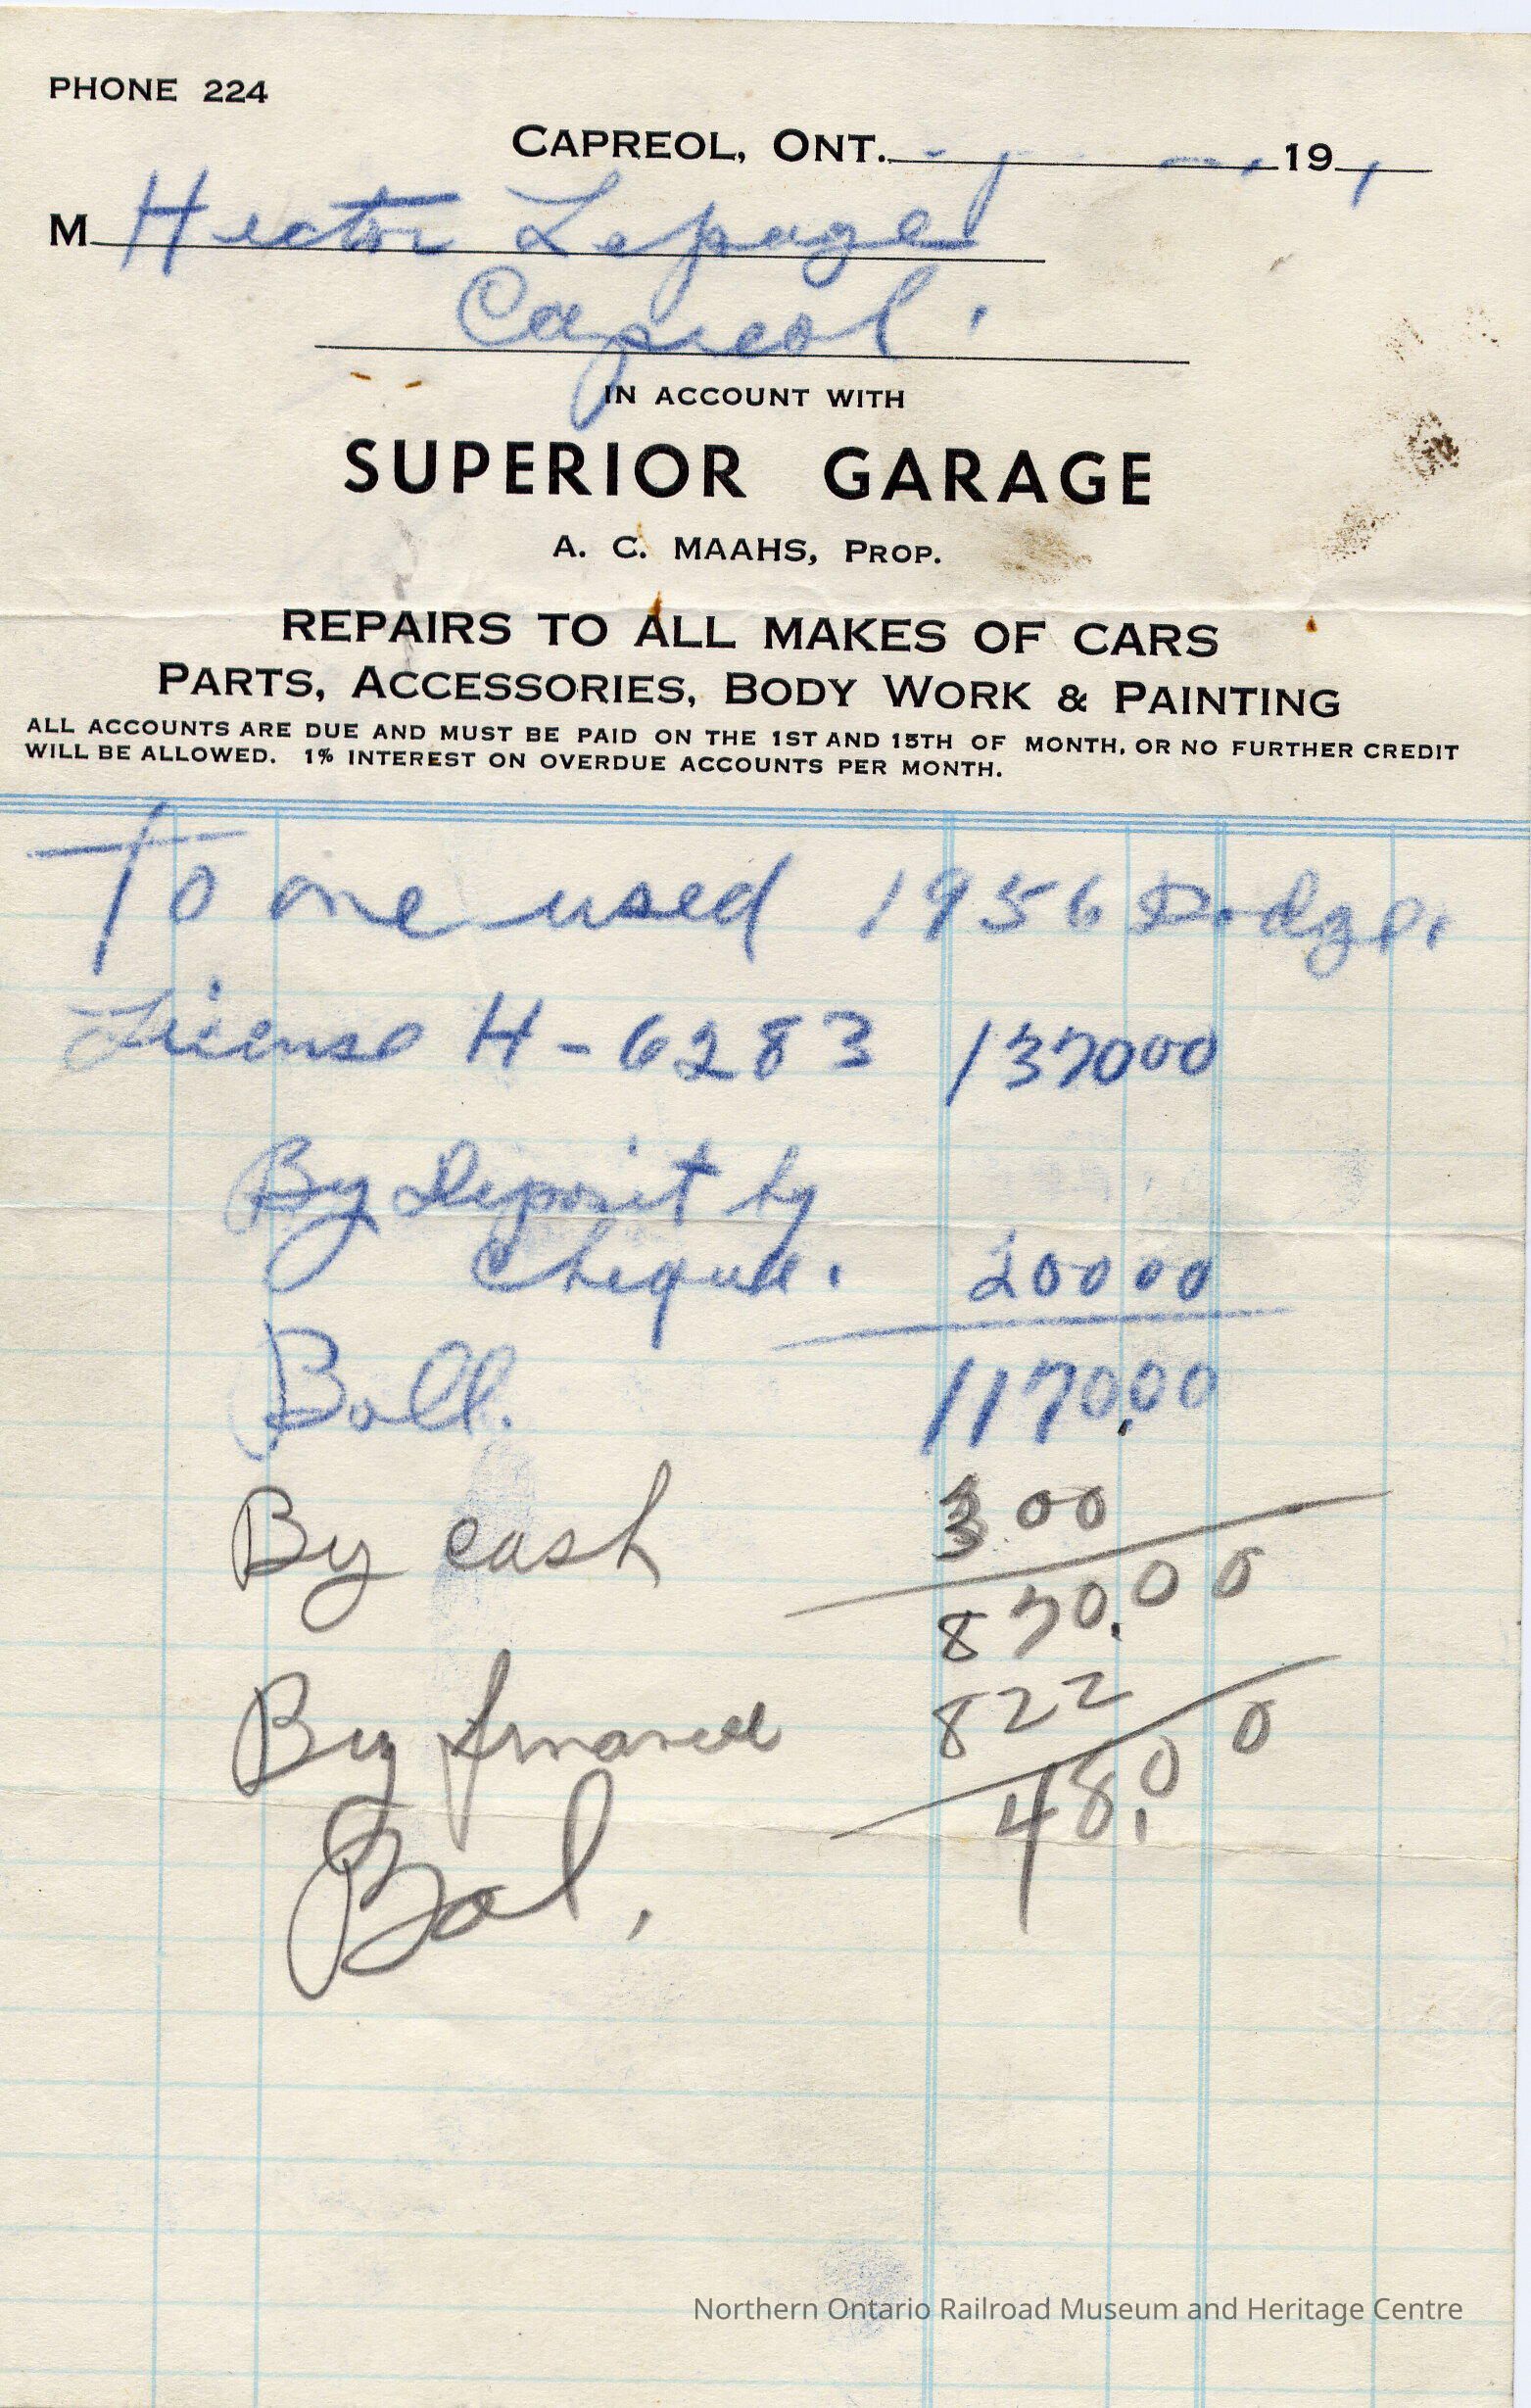 PHONE 224
CAPREOL, ONT. 19
M Hector Lepage
Capreol.
IN ACCOUNT WITH
SUPERIOR GARAGE
A. C. MAAHS, PROP.
REPAIRS TO ALL MAKES OF CARS
PARTS, ACCESSORIES, BODY WORK & PAINTING
ALL ACCOUNTS ARE DUE AND MUST BE PAID ON THE 1ST AND 15TH OF MONTH, OR NO FURTHER CREDIT
WILL BE ALLOWED. 1% INTEREST ON OVERDUE ACCOUNTS PER MONTH.
To one used 1956 Dodge.
License H-6283 137000
By Deposit by
Cheque. 20000
Ball. 1170.00
By cash 300
870.00
By finance 822
48.00
Bal.
Northern Ontario Railroad Museum and Heritage Centre